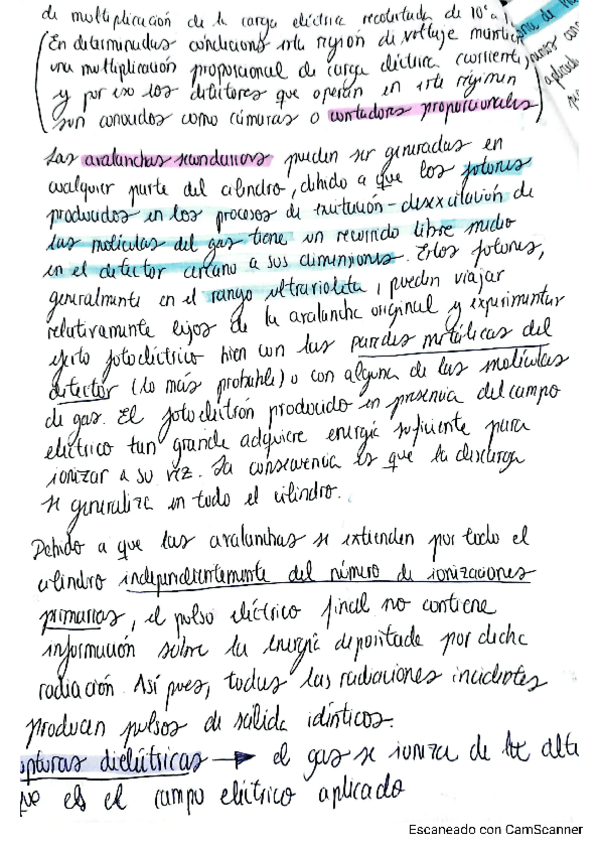 de multiplicación de la carga eléctrica recolectada de 10⁶ a
(En determinadas condiciones esta región de voltaje muestra
una multiplicación proporcional de carga eléctrica (corriente),
y por eso los detectores que operan en este régimen
son conocidos como cámaras o contadores proporcionales)
Las avalanchas secundarias pueden ser generadas en
cualquier parte del cilindro, debido a que los fotones
producidos en los procesos de excitación-desexcitación de
las moléculas del gas tiene un recorrido libre medio
en el detector cercano a sus dimensiones. Estos fotones,
generalmente en el rango ultravioleta, pueden viajar
relativamente lejos de la avalancha original y experimentar
efecto fotoeléctrico bien con las paredes metálicas del
detector (lo más probable) o con alguna de las moléculas
de gas. El fotoelectrón producido en presencia del campo
eléctrico tan grande adquiere energía suficiente para
ionizar a su vez. La consecuencia es que la descarga
se generaliza en todo el cilindro.
Debido a que las avalanchas se extienden por todo el
cilindro independientemente del número de ionizaciones
primarias, el pulso eléctrico final no contiene
información sobre la energía depositada por dicha
radiación. Así pues, todas las radiaciones incidentes
producen pulsos de salida idénticos.
pturas dieléctricas → el gas se ioniza de lo alto
que es el campo eléctrico aplicado
Escaneado con CamScanner